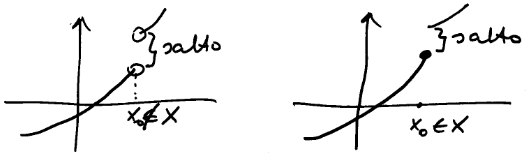 } salto
x₀ ∉ X
} salto
x₀ ∈ X